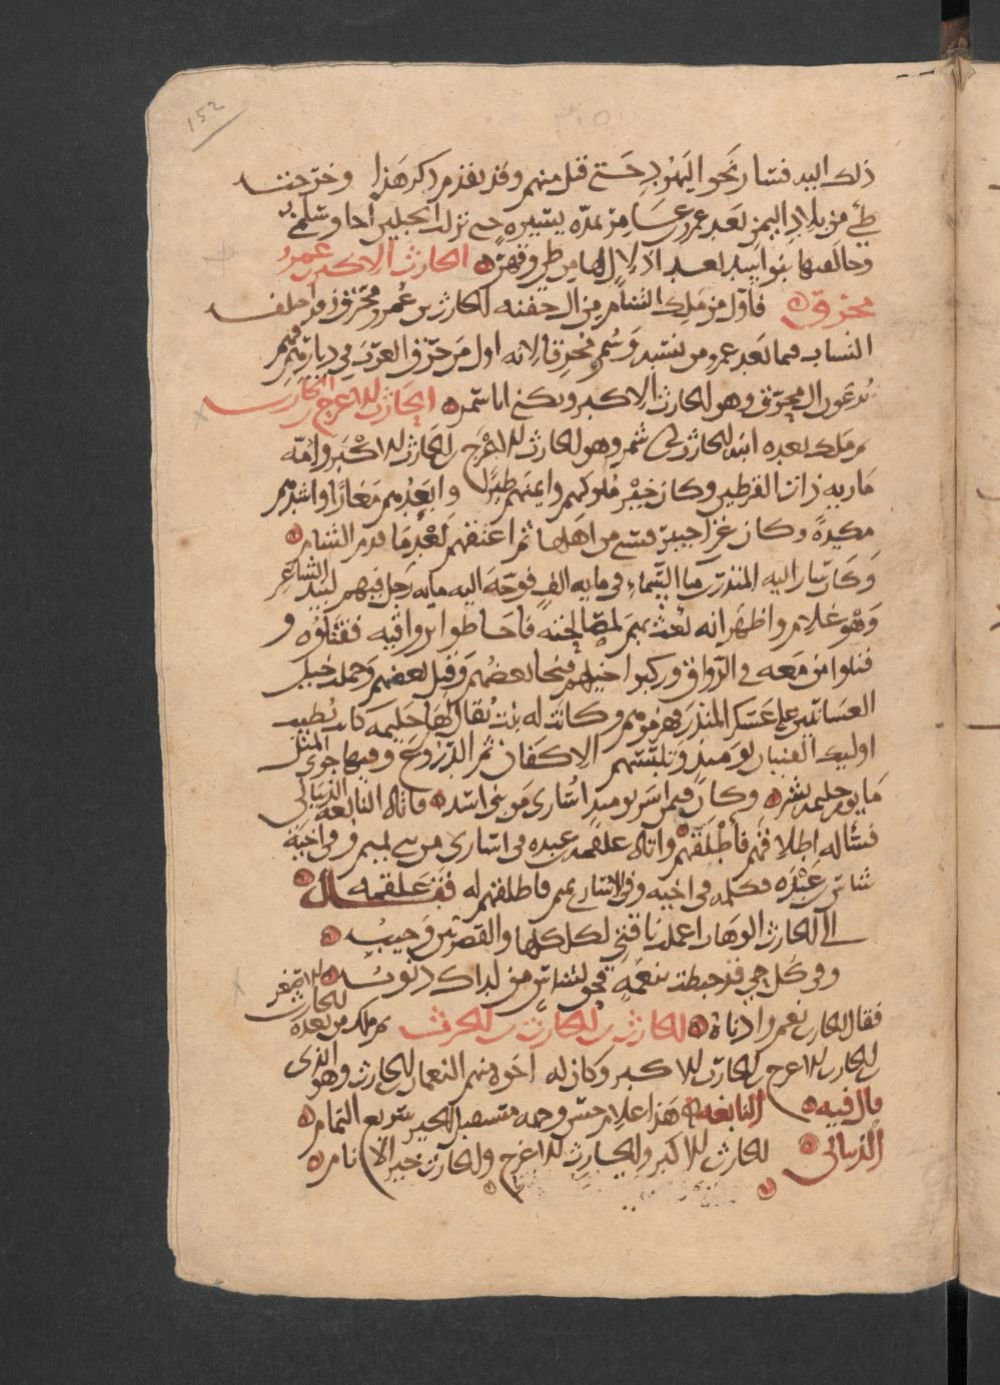 152
ذلك اليه فسار نحو اليهود حتى قتل منهم وقد تقدم ذكر هذا وخرجت
طيئ من بلاد اليمن بعد عمرو عـ بمدة يسيره حتى نزلت الجبلين اجا وسلمى
وحالفها بنو اسد بعد اذلال لها من طي وقهر الحارث الاكبر عمرو
محرق فاول من ملك الشام من ال جفنه الحارث بن عمرو محرق وقد اختلف
النساب فيما بعد عمرو من نسبه وسمي محرقا لانه اول من حرق العرب في ديارهم فهم
يدعون ال محرق وهو الحارث الاكبر ويكنى ابا شمر الحارث الاعرج بن الحارث
ثم ملك بعده ابنه الحارث بن ابي شمر وهو الحارث الاعرج بن الحارث الاكبر وامه
ماريه ذات القرطين وكان خير ملوكهم وايمنهم طيرا وابعدهم مغارا واشدهم
مكيدة وكان غزا خيبر فسبى من اهلها ثم اعتقهم بعد ما قدم الشام
وكان سار اليه المنذر بن ما السماء في مايه الف فوجه اليه مايه رجل فيهم لبيد الشاعر
وهو غلام واظهر انه بعث بهم لمصالحته فاحاطوا برواقه فقتلوه و
قتلوا من معه في الرواق وركبوا خيلهم فنجا بعضهم وقتل بعضهم وحملت خيل
الغسانيين على عسكر المنذر فهزموهم وكانت له بنت يقال لها حليمه كانت تطيب
اوليك الفتيان يومئذ وتلبسهم الاكفان ثم الدروع وفيها جرى المثل
ما يوم حليمه بسر وكان فيمن اسر يومئذ اسارى من بني اسد فاتاه النابغه الذبياني
فساله اطلاقهم فاطلقهم واتاه علقمه بن عبده في اسارى من بني تميم وفي اخيه
شاس بن عبده فكلمه في اخيه وفي الاسارى فاطلقهم له ففيه علقمه قال
الى الحارث الوهاب اعملت ناقتي لكلكلها والقصريين وجيب
وفي كل حي قد خبطت بنعمة فحق لشاس من نداك ذنوب
فقال الحارث نعم واذنبة الحارث بن الحارث بن الحارث ثم ملك من بعده الحارث الاصغر
بن الحارث الاعرج بن الحارث الاكبر وكان له اخوه منهم النعمان بن الحارث وهو الذي
قال فيه النابغه هذا غلام حسن وجهه مستقبل الخير سريع التمام
الذبياني للحارث الاكبر والحارث الاعرج والحارث خير الانام